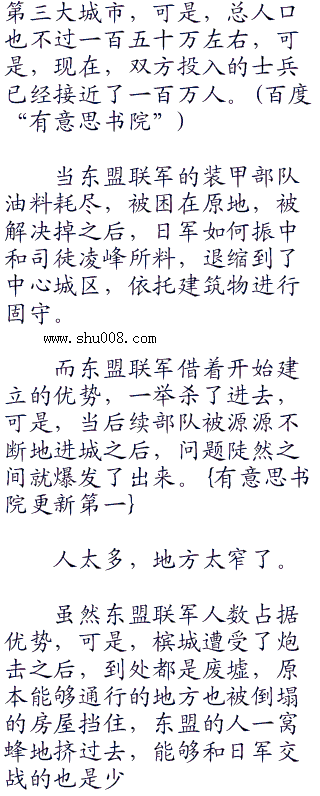 第三大城市，可是，总人口
也不过一百五十万左右，可
是，现在，双方投入的士兵
已经接近了一百万人。(百度
“有意思书院”)
当东盟联军的装甲部队
油料耗尽，被困在原地，被
解决掉之后，日军如何振中
和司徒凌峰所料，退缩到了
中心城区，依托建筑物进行
固守。
www.shu008.com
而东盟联军借着开始建
立的优势，一举杀了进去，
可是，当后续部队被源源不
断地进城之后，问题陡然之
间就爆发了出来。{有意思书
院更新第一}
人太多，地方太窄了。
虽然东盟联军人数占据
优势，可是，槟城遭受了炮
击之后，到处都是废墟，原
本能够通行的地方也被倒塌
的房屋挡住，东盟的人一窝
蜂地挤过去，能够和日军交
战的也是少